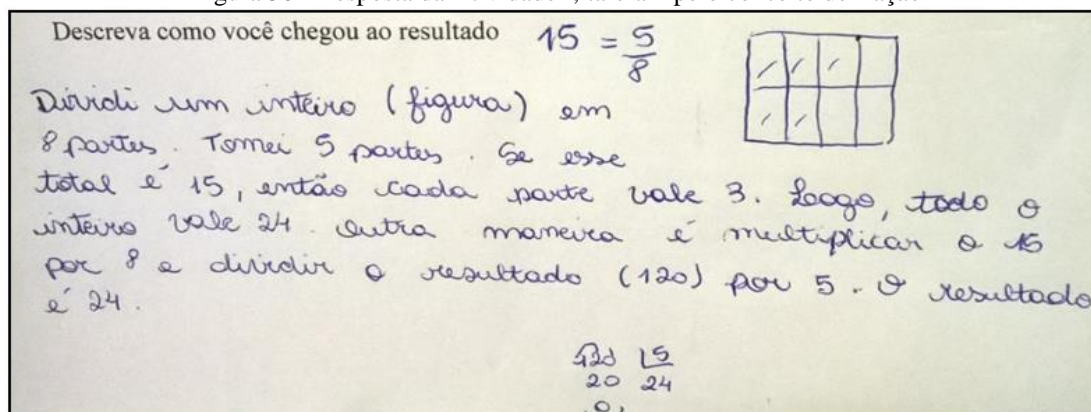 Descreva como você chegou ao resultado 15 = 5/8
Dividi um inteiro (figura) em
8 partes. Tomei 5 partes. Se esse
total é 15, então cada parte vale 3. Logo, todo o
inteiro vale 24. Outra maneira é multiplicar o 15
por 8 e dividir o resultado (120) por 5. O resultado
é 24.
120 5
20 24